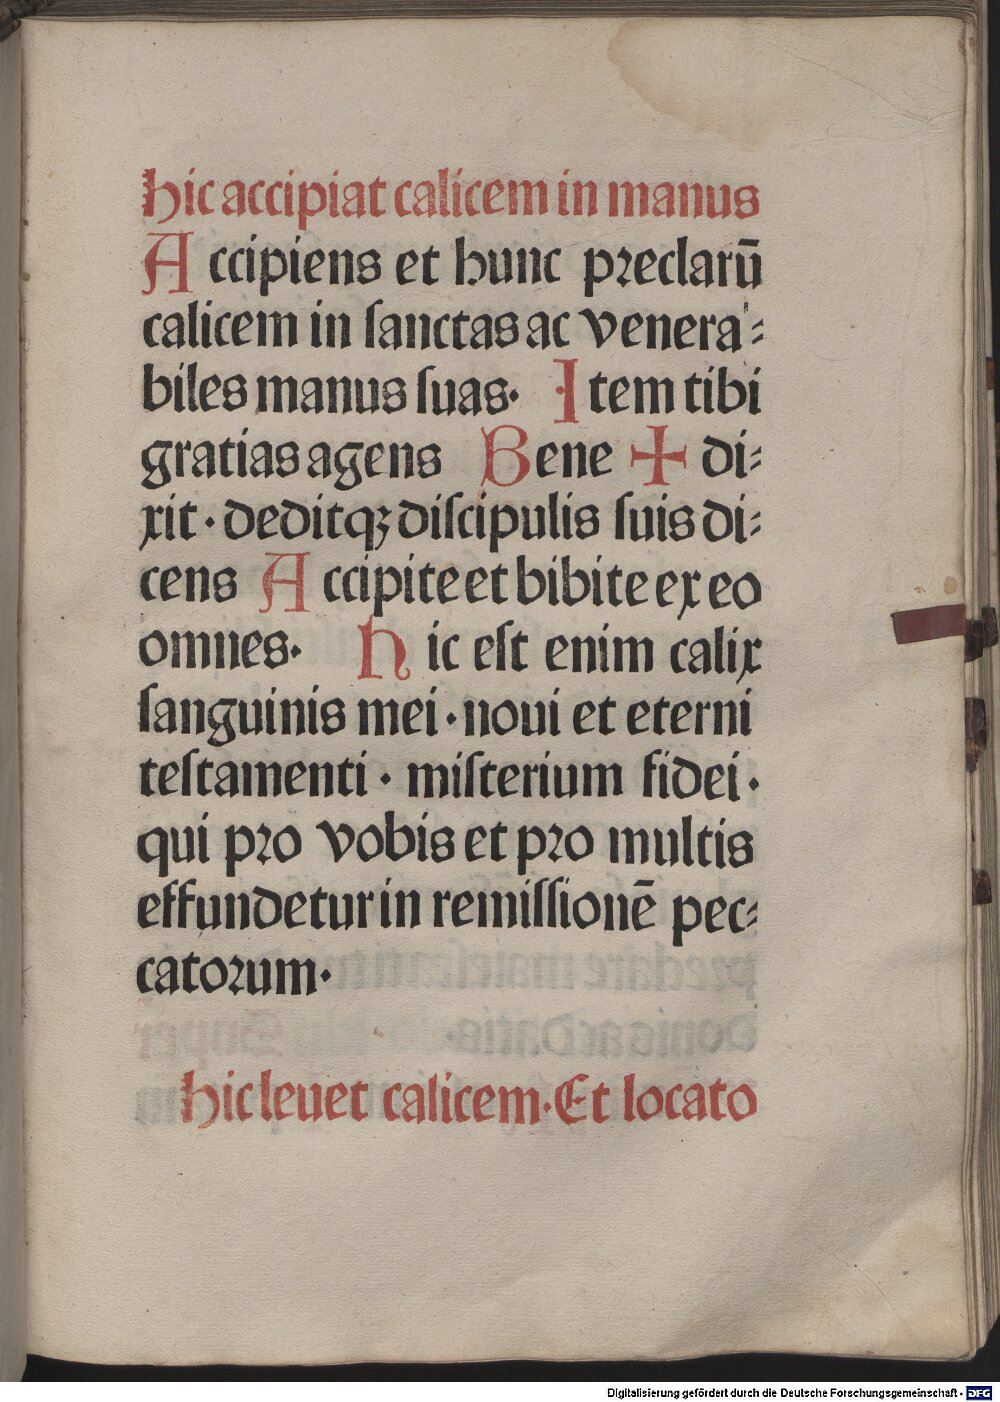 hic accipiat calicem in manus
Accipiens et hunc preclarū
calicem in ſanctas ac venera⸗
biles manus ſuas· Item tibi
gratias agens Bene ✠ di⸗
xit · deditqꝫ diſcipulis ſuis di⸗
cens Accipite et bibite ex eo
omnes· Hic eſt enim calix
ſanguinis mei · noui et eterni
teſtamenti · miſterium fidei ·
qui pro vobis et pro multis
effundetur in remiſſionē pec⸗
catorum·
hic leuet calicem · Et locato
Digitalisierung gefördert durch die Deutsche Forschungsgemeinschaft · DFG